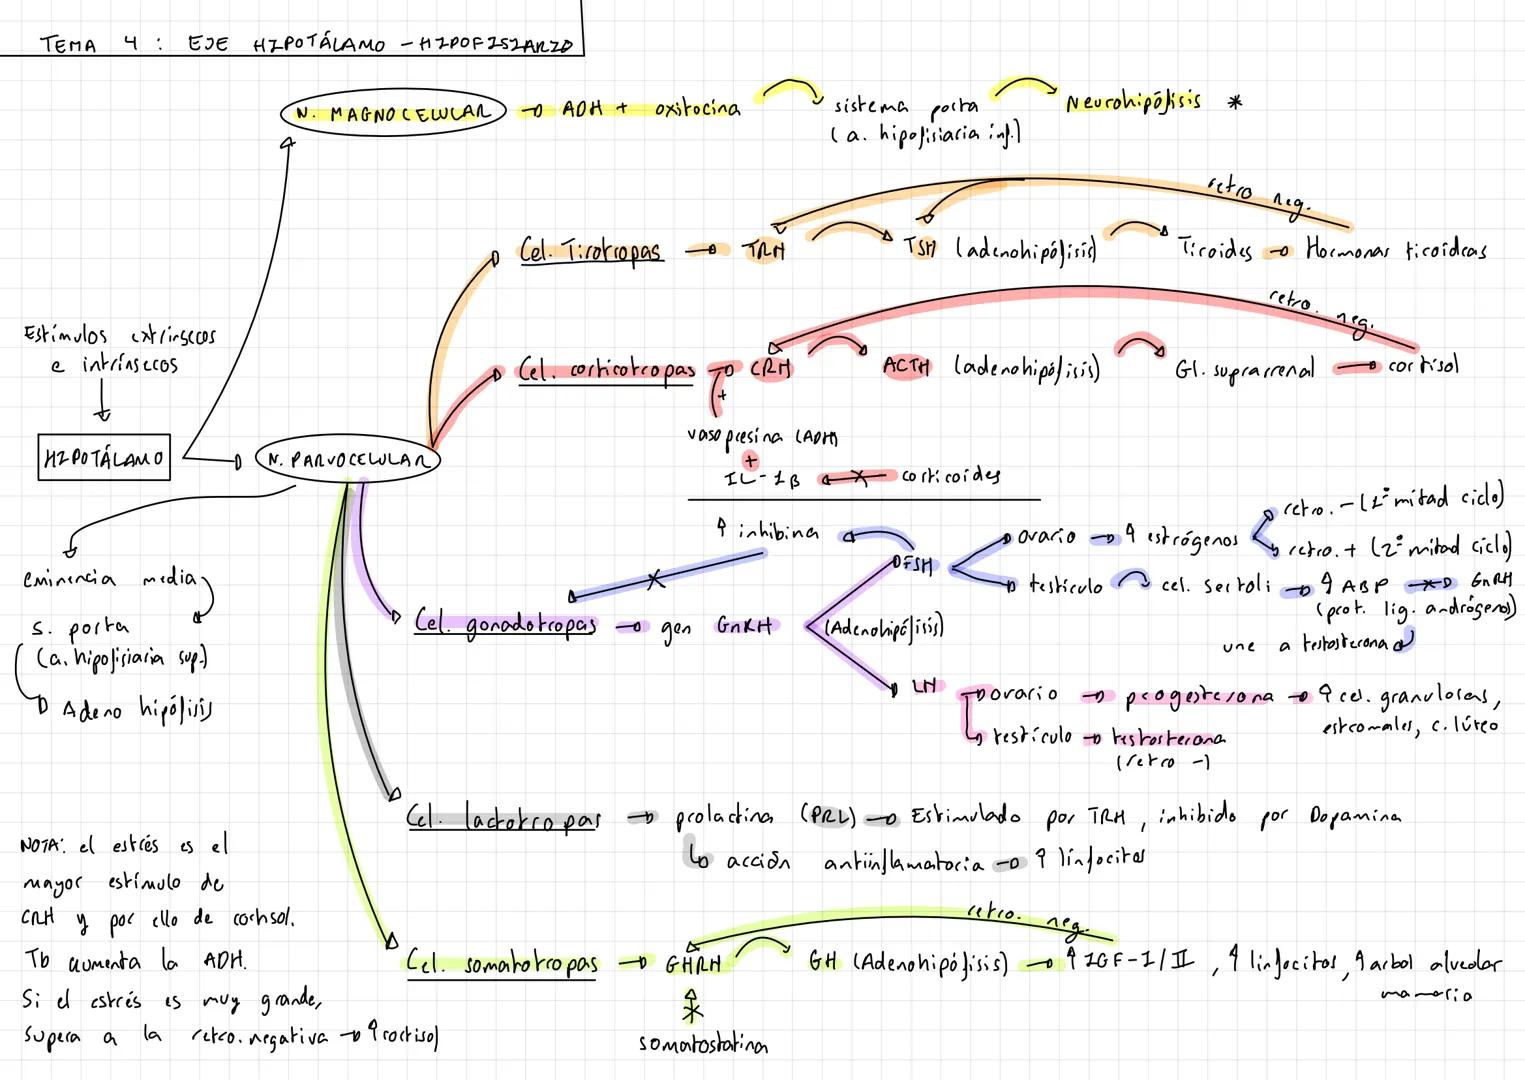 TEMA 4 : EJE HIPOTÁLAMO - HIPOFISIARIO
N. MAGNOCELULAR → ADH + oxitocina
sistema porta
(a. hipofisiaria inf.)
Neurohipófisis *
retro neg.
Cel. Tirotropas → TRH
TSH (adenohipófisis)
Tiroides → Hormonas tiroideas
Estímulos extrínsecos
e intrínsecos
HIPOTÁLAMO
retro. neg.
Cel. corticotropas → CRH
ACTH (adenohipófisis)
Gl. suprarrenal → cortisol
+
vasopresina (ADH)
+
IL-1B ← corticoides
N. PARVOCELULAR
eminencia media
s. porta
(a. hipofisiaria sup.)
Adeno hipófisis
↑ inhibina
FSH
ovario → ↑ estrógenos
retro. - (1ª mitad ciclo)
retro. + (2ª mitad ciclo)
testículo
cel. sertoli → ↑ ABP → GnRH
(prot. lig. andrógeno)
une a testosterona
Cel. gonadotropas → gen GnRH
(Adenohipófisis)
LH
ovario → progesterona → ↑ cel. granulosas,
estromales, c. lúteo
testículo → testosterona
(retro -)
Cel. lactotropas → prolactina (PRL) → Estimulado por TRH, inhibido por Dopamina
acción antiinflamatoria → ↑ linfocitos
NOTA: el estrés es el
mayor estímulo de
CRH y por ello de cortisol.
Tb aumenta la ADH.
Si el estrés es muy grande,
supera a la retro. negativa → ↑ cortisol
retro. neg.
Cel. somatotropas → GHRH
GH (Adenohipófisis) → ↑ IGF-I/II, ↑ linfocitos, ↑ arbol alveolar
mamaria
somatostatina